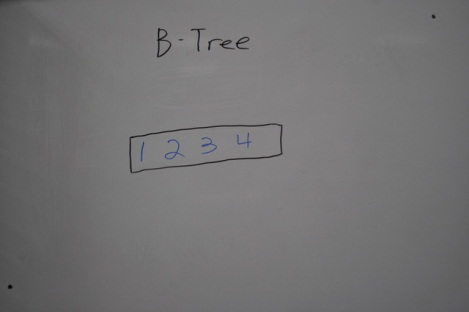 B-Tree
1 2 3 4